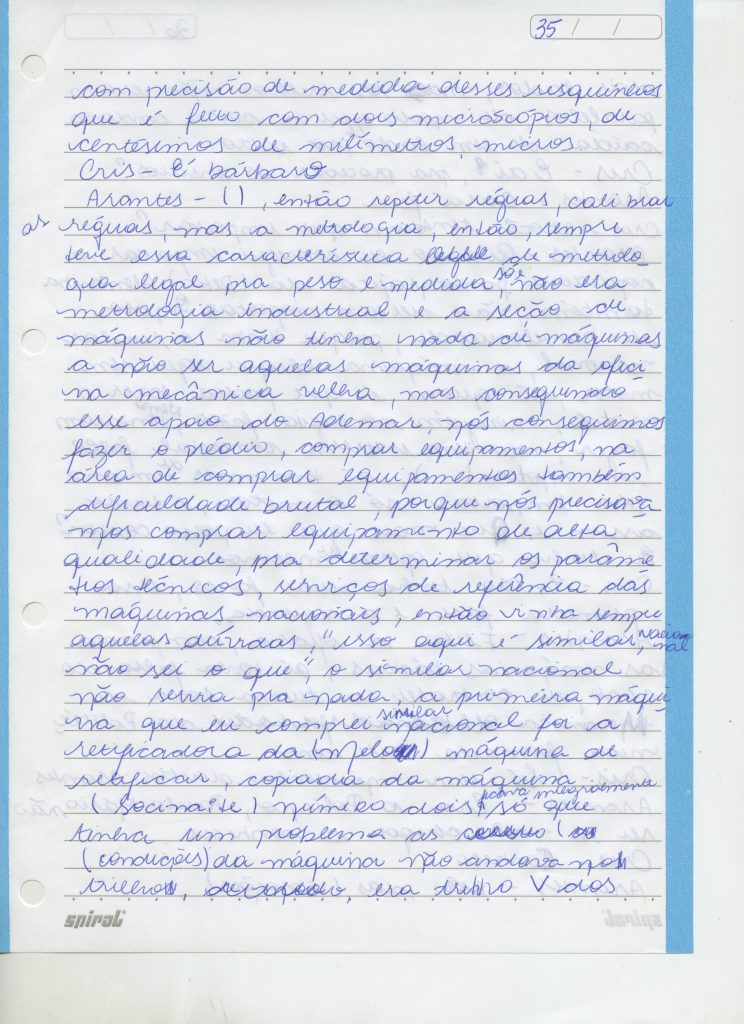 35 / /
com precisão de medida desses resquineios
que é feito com dois microscópios, de
centésimos de milímetros, micros.
Cris - É bárbaro
Arantes - ( ), então repetir réguas, calibrar
as réguas, mas a metrologia, então, sempre
teve essa característica de metrolo-
gia legal pra peso e medida, só e não era
metrologia industrial e a seção de
máquinas não tinha nada de máquinas
a não ser aquelas máquinas da ofici
na mecânica velha, mas conseguindo
esse apoio do Ademar, nós conseguimos
fazer o prédio, comprar equipamentos, na
área de comprar equipamentos também
dificuldade brutal, porque nós precisáva
mos comprar equipamento de alta
qualidade, pra determinar os parâme-
tros técnicos, serviços de referência das
máquinas nacionais, então vinha sempre
aquelas dúvidas, "isso aqui é similar, nacional
não sei o que", o similar nacional
não servia pra nada a primeira máqui
na que eu comprei similar nacional foi a
retificadora da (Mello) máquina de
retificar, copiada da máquina
(Socinaste) número dois, copiava integralmente só que
tinha um problema as
(condições) da máquina não andava nos
trilhos, era dentro V dos
spiral